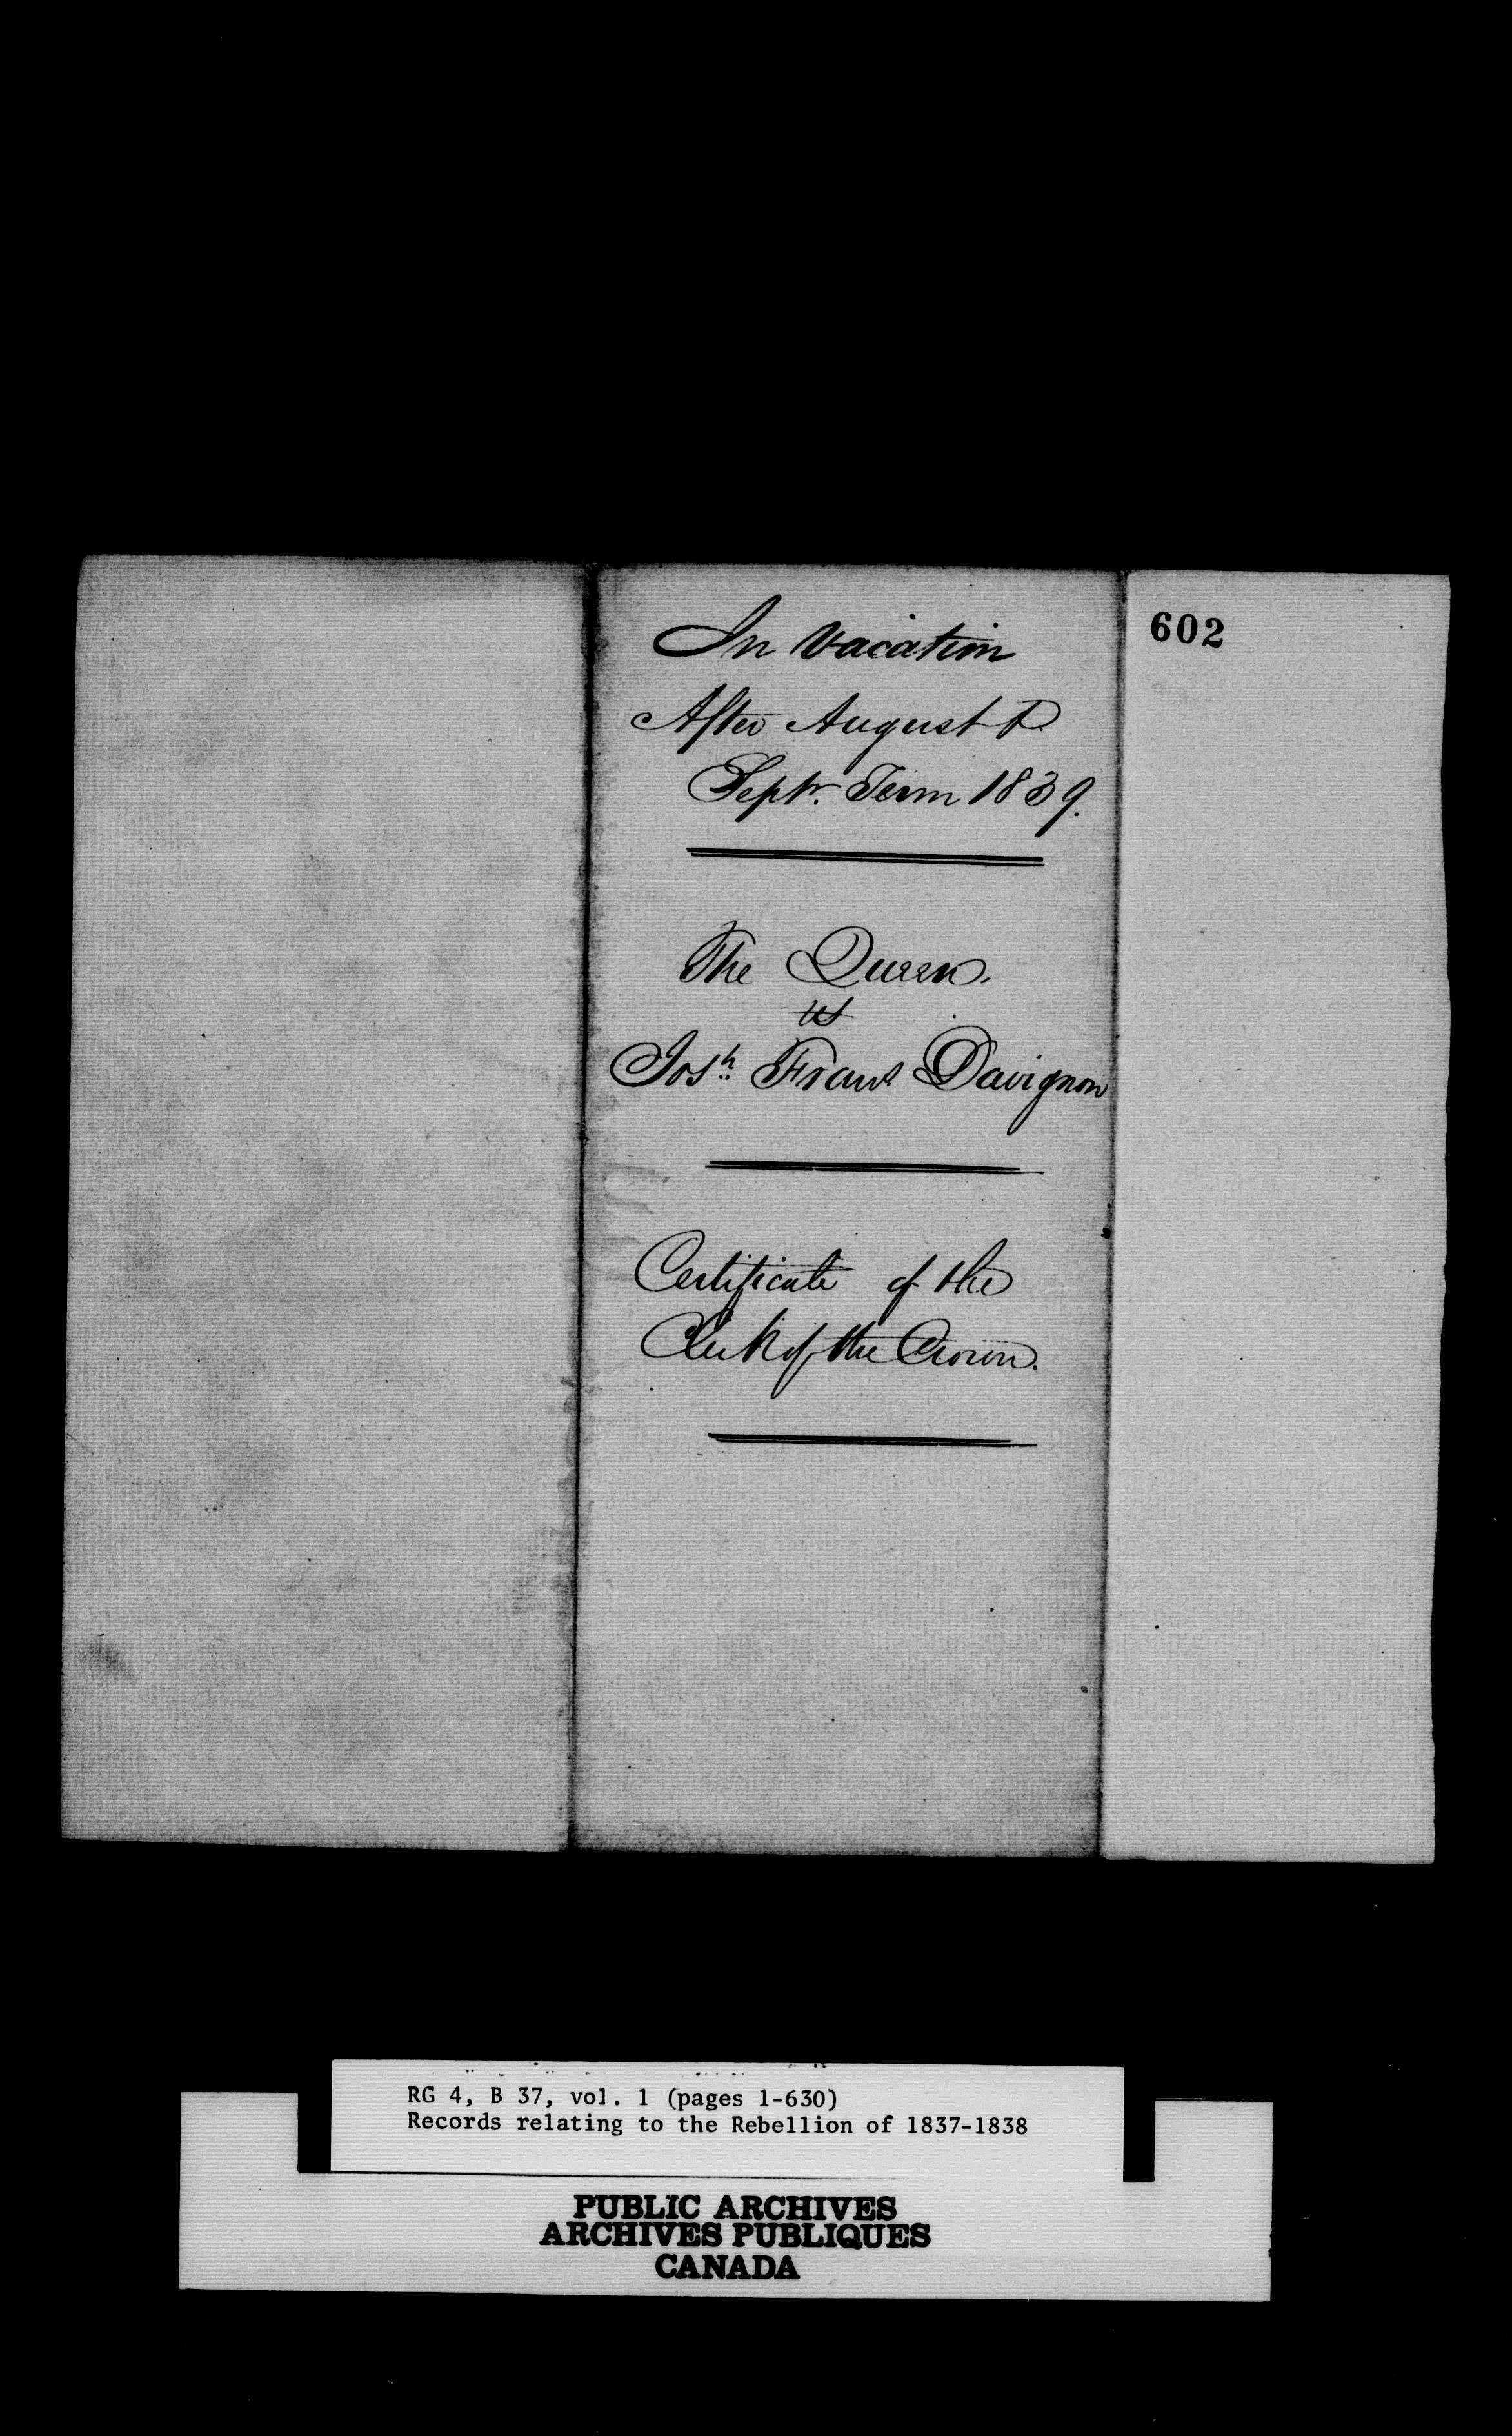 602
In Vacation
After August &
Septr. Term 1839.
The Queen.
vs
Josh. Frans. Davignon
Certificate of the
Clerk of the Crown.
RG 4, B 37, vol. 1 (pages 1-630)
Records relating to the Rebellion of 1837-1838
PUBLIC ARCHIVES
ARCHIVES PUBLIQUES
CANADA